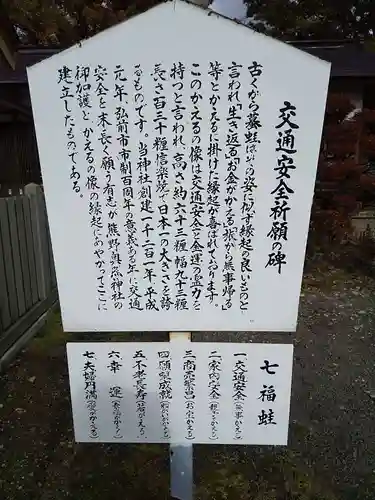 交通安全祈願の碑
古くから蟇蛙は
の姿に似す縁起の良いものと
言われ「生き返る」「お金がかえる」「旅から無事帰る」
等とかえるに掛けた縁起が喜ばれております。
このかえるの像は交通安全と金運の霊力を
持つと言われ、高さ約六十三糎、幅九十三糎
長さ百三十糎信楽焼で日本一の大きさを誇
るものです。当神社創建一千二百一年、平成
元年、弘前市市制百周年の意義ある年に、交通
安全を末長く願う有志が熊野奥照神社の
御加護と、かえるの像の縁起にあやかってここに
建立したものである。
七福蛙
一 交通安全(無事かえる)
二 家内安全
三 商売繁昌
四 願望成就
五 不老長寿
六 幸運
七 夫婦円満